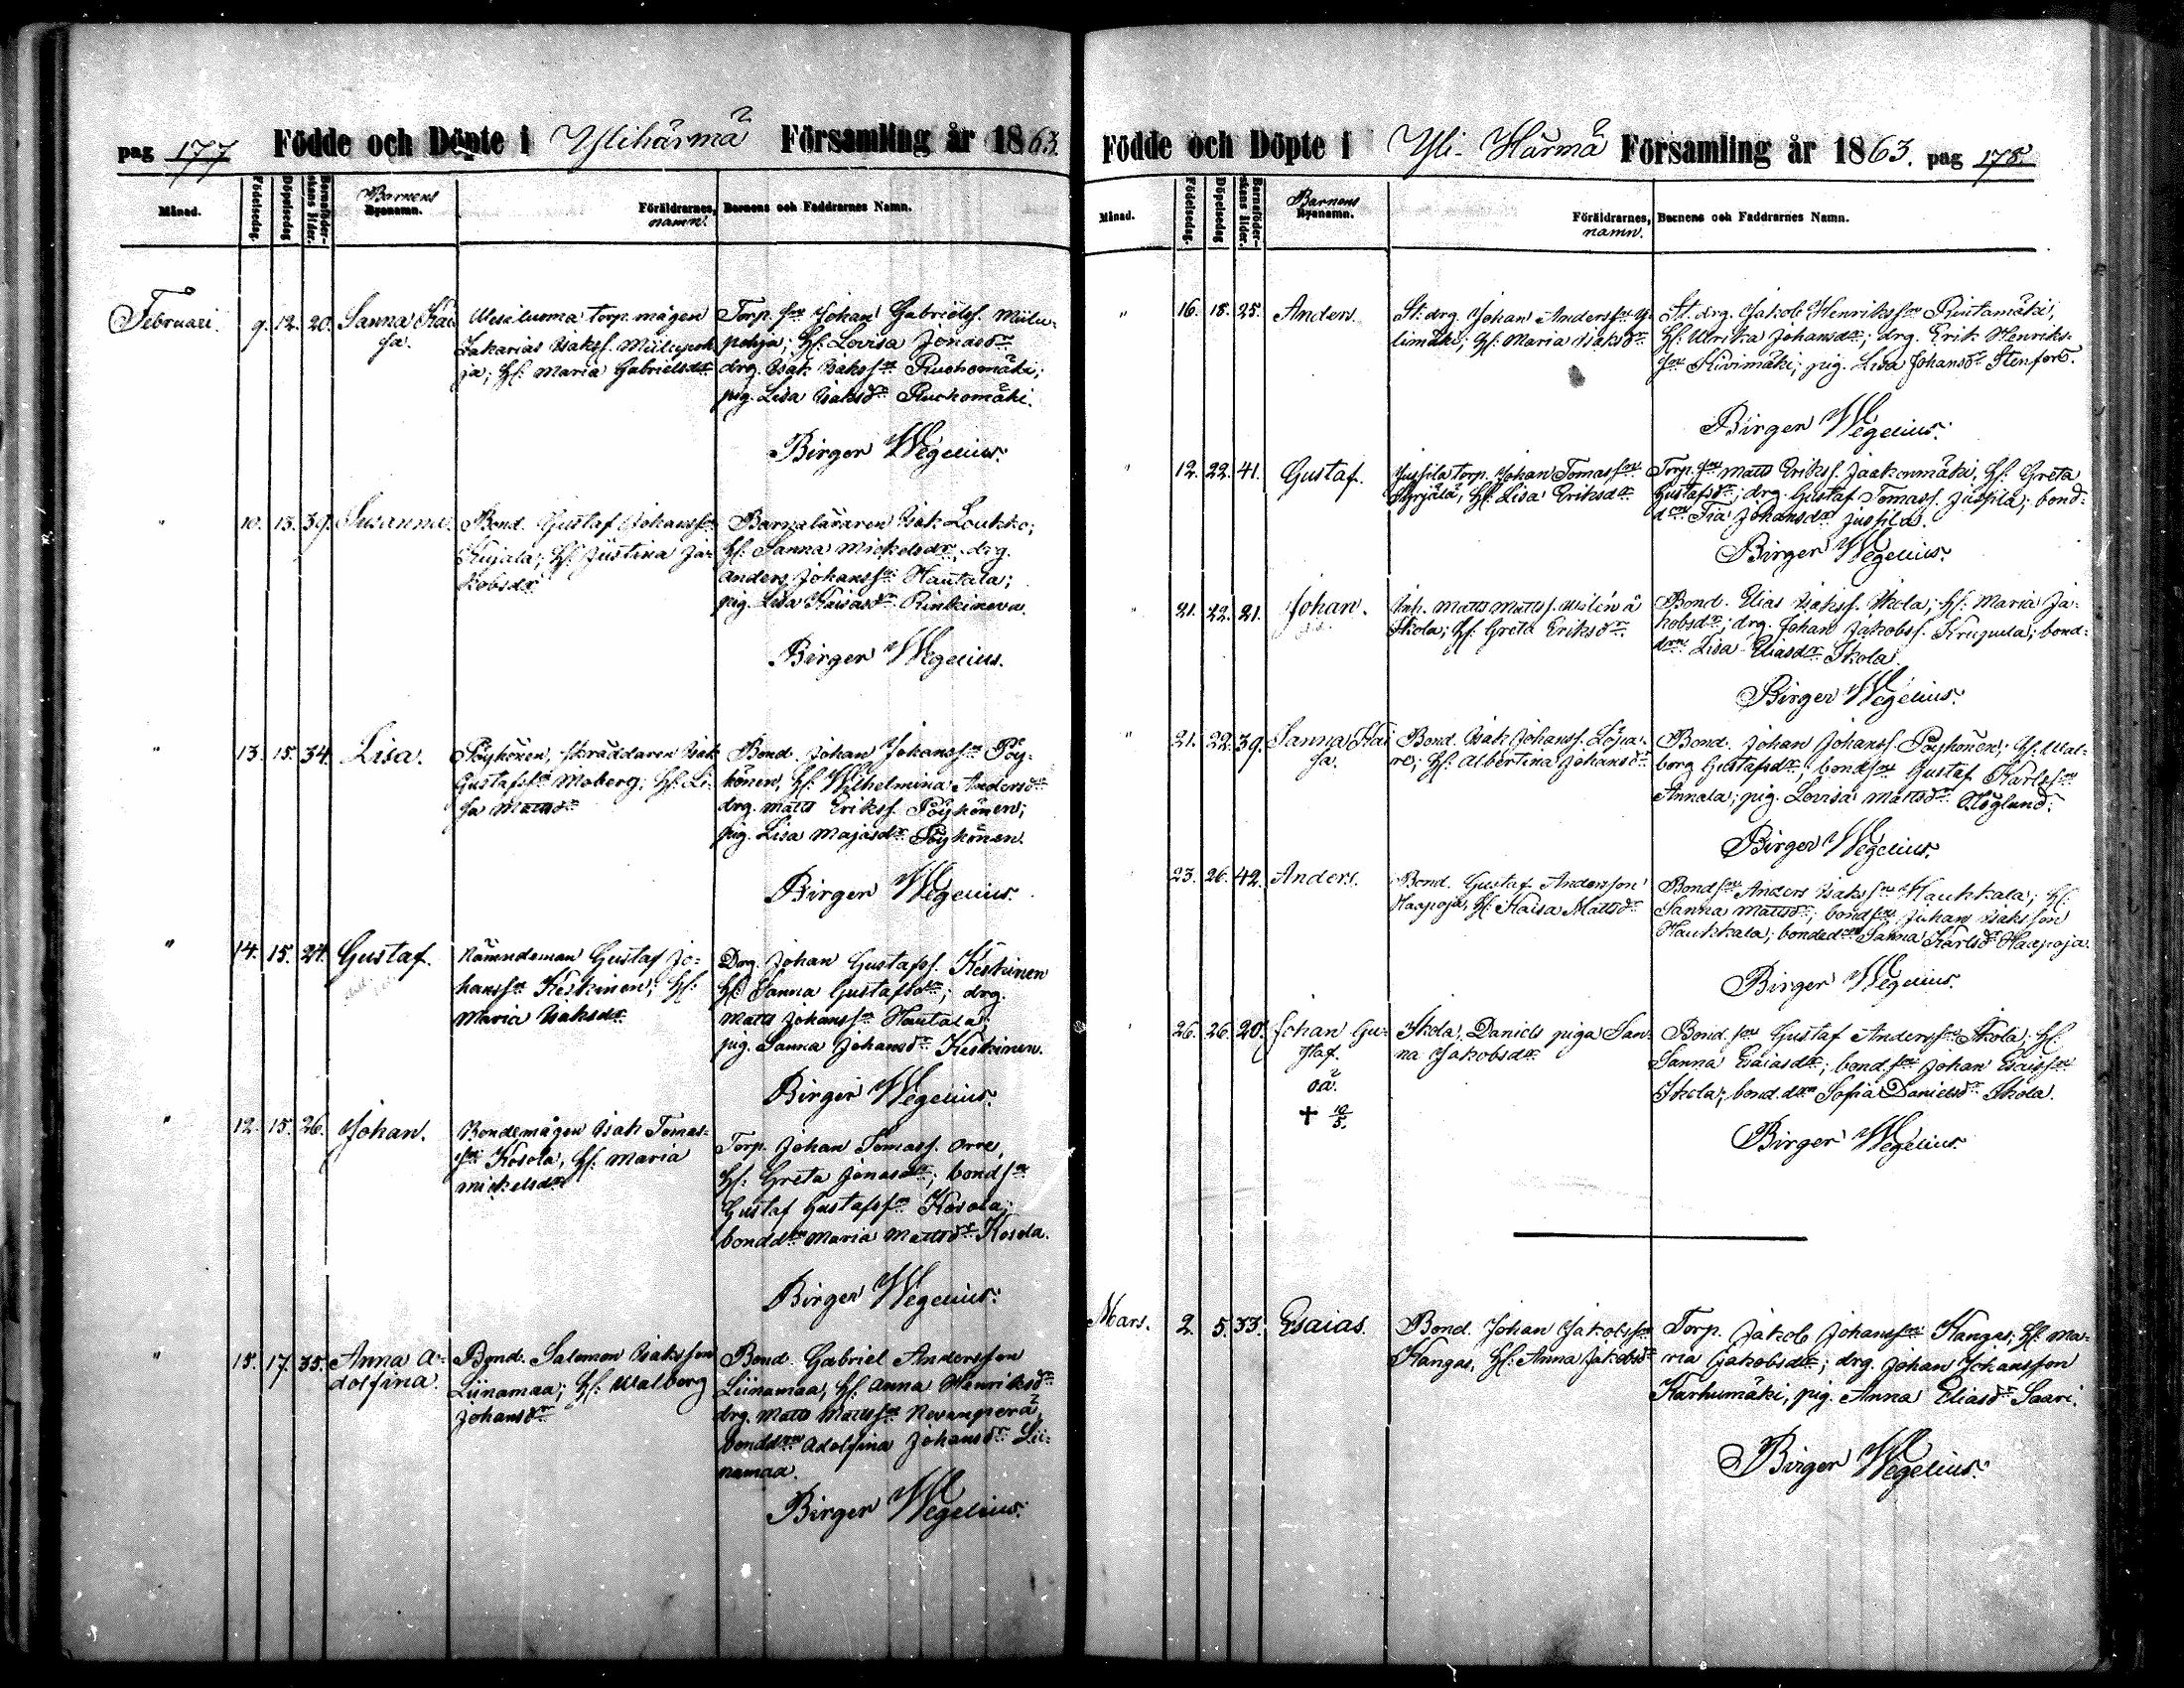 pag 177 Födde och Döpte i Ylihärmä Församling år 1863.
Månad. Födelsedag. Döpelsedag Barnaföderskans ålder. Barnens Bynamn. Föräldrarnes, namn. Barnens och Faddrarnes Namn.
Februari. 9. 12. 20. Sanna Kai
sa.
Wesiluoma torp. mågen
Zakarias Isakss. Miilupoh
ja; Hs: Maria Gabrielsdr
Torp. sn Johan Gabrielss. Miilu-
pohja; Hs: Lovisa Jonasdr
drg. Isak Isakssn Ruohomäki;
pig. Lisa Isaksdr Ruohomäki.
Birger Wegelius.
" 10. 15. 39. Susanna.
Bond. Gustaf Johanss
Kujala; Hs: Justina Ja-
kobsdr
Barnaläraren Isak Loukko;
Hs: Sanna Mickelsdr. drg.
Anders Johanssn Hautala;
pig. Lisa Kaisasdr Rinkineva.
Birger Wegelius.
" 13. 15. 34. Lisa.
Pöyhönen, skräddaren Isak
Gustafssn Moberg; Hs: Li-
sa Mattsdr
Bond. Johan Johanssn Pöy-
hönen, Hs: Wilhelmina Andersdr
drg. Matts Erikss. Pöyhönen;
pig. Lisa Majasdr Pöyhönen.
Birger Wegelius.
" 14. 15. 24. Gustaf.
Nämndeman Gustaf Jo-
hanssn Keskinen; Hs:
Maria Isaksdr
Drg. Johan Gustafss. Keskinen
Hs: Sanna Gustafsdr; drg.
Matts Johanssn Hautala;
pig. Sanna Johansdr Keskinen.
Birger Wegelius.
" 12. 15. 26. Johan.
Bondemågen Isak Tomas-
sn Kosola, Hs: Maria
Mickelsdr
Torp. Johan Tomass. Orre,
Hs: Greta Jonasdr; bondsn
Gustaf Gustafssn Kosola;
bonddrn Maria Mattsdr Kosola.
Birger Wegelius.
" 15. 17. 35. Anna A-
dolfina.
Bond. Salomon Isaksson
Liinamaa; Hs: Walborg
Johansdr
Bond. Gabriel Andersson
Liinamaa, Hs: Anna Henriksdr
drg. Matts Mattssn Nevanperä,
bonddrn Adolfina Johansdr Lii-
namaa.
Birger Wegelius.
Födde och Döpte i Yli-Härmä Församling år 1863. pag 178.
Månad. Födelsedag. Döpelsedag Barnaföderskans ålder. Barnens Bynamn. Föräldrarnes, namn. Barnens och Faddrarnes Namn.
" 16. 18. 25. Anders.
St. drg. Johan Anderssn Y-
limäki; Hs: Maria Isaksdr
St. drg. Jakob Henrikssn Rintamäki,
Hs: Ulrika Johansdr; drg. Erik Henriks-
sn Kivimäki; pig. Lisa Johansdr Stenfors.
Birger Wegelius.
" 12. 22. 41. Gustaf.
Jussila torp. Johan Tomassn
Syrjälä, Hs: Lisa Eriksdr
Torp. sn Matts Erikss. Jaakonmäki, Hs: Greta
Gustafsdr; drg. Gustaf Tomass. Jussila; bond-
drn Fia Johansdr Jussila.
Birger Wegelius.
" 21. 22. 21. Johan.
Inh. Matts Mattss. Wslén å
Ikola; Hs: Greta Eriksdr
Bond. Elias Isakss. Ikola; Hs: Maria Ja-
kobsdr; drg. Johan Jakobss. Krugula; bond-
drn Lisa Eliasdr Ikola.
Birger Wegelius.
" 21. 22. 39. Sanna Kai
sa.
Bond. Isak Johanss.
re; Hs: Albertina Johansdr
Bond. Johan Johanss. Pöyhönen; Hs: Wal-
borg Gustafsdr; bondsn Gustaf Karlssn
Annala; pig. Lovisa Mattsdr Höglund.
Birger Wegelius.
23. 26. 42. Anders.
Bond. Gustaf Andersson
Haapoja, Hs: Kaisa Mattsdr
Bondsn Anders Isakssn Haukkala; Hs:
Sanna Mattsdr; bondsn Juhan Isaksson
Haukkala; bondedrn Sanna Karlsdr Haapoja.
Birger Wegelius.
26. 26. 20. Johan Gu-
staf.
oä.
+ 10/5.
Ikola, Daniels piga San-
na Jakobsdr
Bond. sn Gustaf Anderssn Ikola; Hs:
Sanna Esaiasdr; bond. sn Johan Esaissn
Ikola; bond. drn Sofia Danielsdr Ikola.
Birger Wegelius.
Mars. 2. 5. 33. Esaias.
Bond. Johan Jakobssn
Kangas, Hs: Anna Jakobsdr
Torp. Jakob Johanssn Kangas; Hs: Ma-
ria Jakobsdr; drg. Johan Johansson
Karhumäki, pig. Anna Eliasdr Saari.
Birger Wegelius.